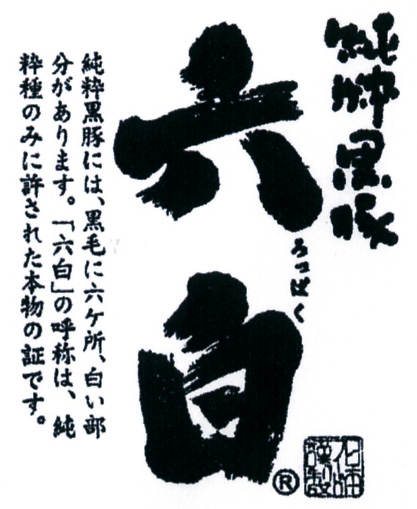 純粋黒豚
六白
ろっぱく
純粋黒豚には、黒毛に六ケ所、白い部
分があります。「六白」の呼称は、純
粋種のみに許された本物の証です。
®